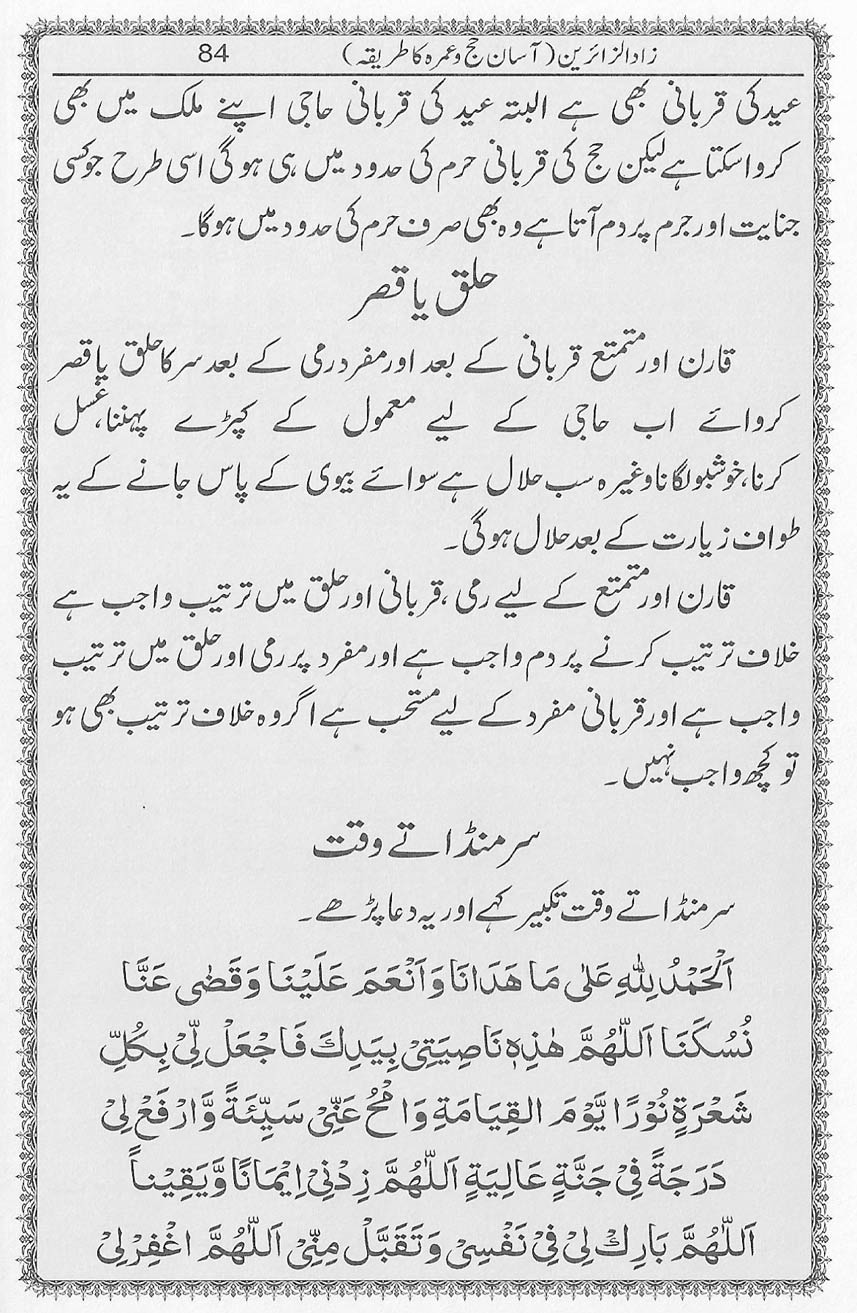 زاد الزائرین (آسان حج وعمرہ کا طریقہ) 84
عید کی قربانی بھی ہے البتہ عید کی قربانی حاجی اپنے ملک میں بھی
کرواسکتا ہے لیکن حج کی قربانی حرم کی حدود میں ہی ہوگی اسی طرح جو کسی
جنایت اور جرم پر دم آتا ہے وہ بھی صرف حرم کی حدود میں ہوگا۔
حلق یا قصر
قارن اور متمتع قربانی کے بعد اور مفرد رمی کے بعد سر کا حلق یا قصر
کروائے اب حاجی کے لیے معمول کے کپڑے پہننا، غسل
کرنا، خوشبو لگانا وغیرہ سب حلال ہے سوائے بیوی کے پاس جانے کے یہ
طواف زیارت کے بعد حلال ہوگی۔
قارن اور متمتع کے لیے رمی، قربانی اور حلق میں ترتیب واجب ہے
خلاف ترتیب کرنے پر دم واجب ہے اور مفرد پر رمی اور حلق میں ترتیب
واجب ہے اور قربانی مفرد کے لیے مستحب ہے اگر وہ خلاف ترتیب بھی ہو
تو کچھ واجب نہیں۔
سر منڈاتے وقت
سر منڈاتے وقت تکبیر کہے اور یہ دعا پڑھے۔
اَلْحَمْدُ لِلّٰهِ عَلٰى مَا هَدَانَا وَاَنْعَمَ عَلَيْنَا وَقَضٰى عَنَّا
نُسُكَنَا اَللّٰهُمَّ هٰذِهٖ نَاصِيَتِيْ بِيَدِكَ فَاجْعَلْ لِّيْ بِكُلِّ
شَعْرَةٍ نُوْرًا يَّوْمَ الْقِيَامَةِ وَامْحُ عَنِّيْ سَيِّئَةً وَّارْفَعْ لِيْ
دَرَجَةً فِيْ جَنَّةٍ عَالِيَةٍ اَللّٰهُمَّ زِدْنِيْ اِيْمَانًا وَّيَقِيْناً
اَللّٰهُمَّ بَارِكْ لِيْ فِيْ نَفْسِيْ وَتَقَبَّلْ مِنِّيْ اَللّٰهُمَّ اغْفِرْ لِيْ